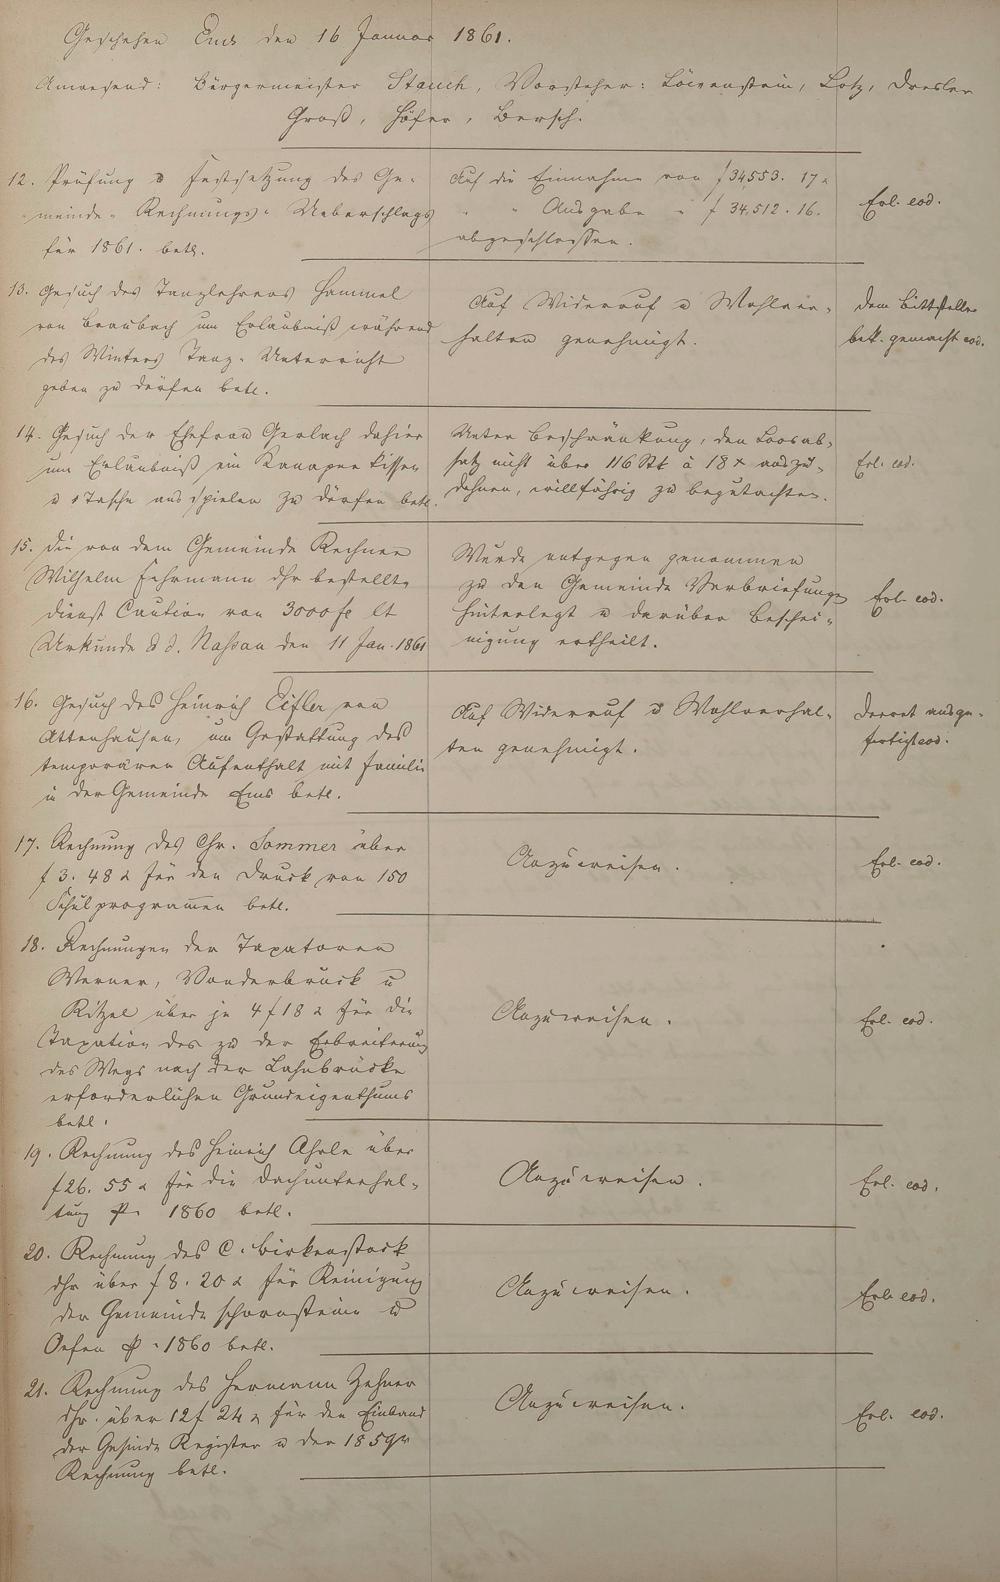 Geschehen Ems den 16 Januar 1861.
Anwesend: Bürgermeister Stauch, Vorsteher: Löwenstein, Lotz, Dresler
Groß, Höfer, Bersch.
12. Prüfung u Festsetzung des Ge-
meinde-Rechnungs-Ueberschlags
für 1861. betr.
Auf die Einnahme von f 34553. 17 x
" " Ausgabe " f 34,512. 16.
abgeschlossen.
Erl. eod.
13. Gesuch des Tanzlehrers Hammel
von Braubach um Erlaubniß während
des Winters Tanz-Unterricht
geben zu dürfen betr.
Auf Widerruf u Wohlver-
halten genehmigt.
Dem Bittsteller
bek. gemacht eod.
14. Gesuch der Ehefrau Gerlach dahier
um Erlaubniß ein Kanapee Kissen
u 1 Tasche ausspielen zu dürfen betr.
Unter Beschränkung, den Loosab-
satz nicht über 116 Stk à 18 x auszu-
dehnen, willfährig zu begutachten.
Erl. eod.
15. Die von dem Gemeinde Rechner
Wilhelm Fuhrmann dhr bestellte
Dienst Caution von 3000 fl lt
Urkunde d. d. Nassau den 11 Jan. 1861
Wurde entgegen genommen
zu den Gemeinde Verbriefungen
hinterlegt u darüber Beschei-
nigung ertheilt.
Erl. eod.
16. Gesuch des Heinrich Eifler von
Attenhausen, um Gestattung des
temporären Aufenthalt mit Familie
in der Gemeinde Ems betr.
Auf Widerruf u Wohlverhal-
ten genehmigt.
Decret ausge-
fertigt eod.
17. Rechnung des Chr. Sommer über
f 3. 48 x für den Druck von 150
Schulprogrammen betr.
Anzuweisen.
Erl. eod.
18. Rechnungen der Taxatoren
Werner, Vonderbrück u
Ritzel über je 4 f 18 x für die
Taxation des zu der Erbreiterung
des Wegs nach der Lahnbrücke
erforderlichen Grundeigenthums
betr.
Anzuweisen.
Erl. eod.
19. Rechnung des Heinrich Ahrle über
f 26. 55 x für die Dachunterhal-
tung p. 1860 betr.
Anzuweisen.
Erl. eod.
20. Rechnung des C. Birkenstock
dhr über f 8. 20 x für Reinigung
der Gemeinde schornsteine u
Oefen p. 1860 betr.
Anzuweisen.
Erl. eod.
21. Rechnung des Hermann Zehner
dhr. über 12 f 24 x für den Einband
der Gesinde Register u der 1859r
Rechnung betr.
Anzuweisen.
Erl. eod.